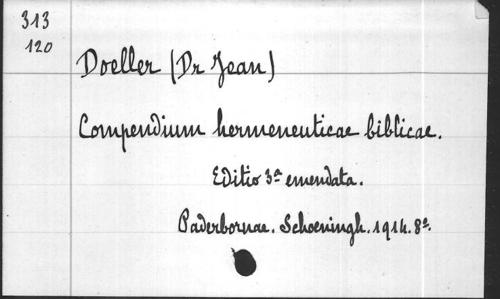 313
120
Doeller (Dr Jean)
Compendium hermeneuticae biblicae.
Editio 3ª emendata.
Paderbornae. Schoeningh. 1914. 8º.